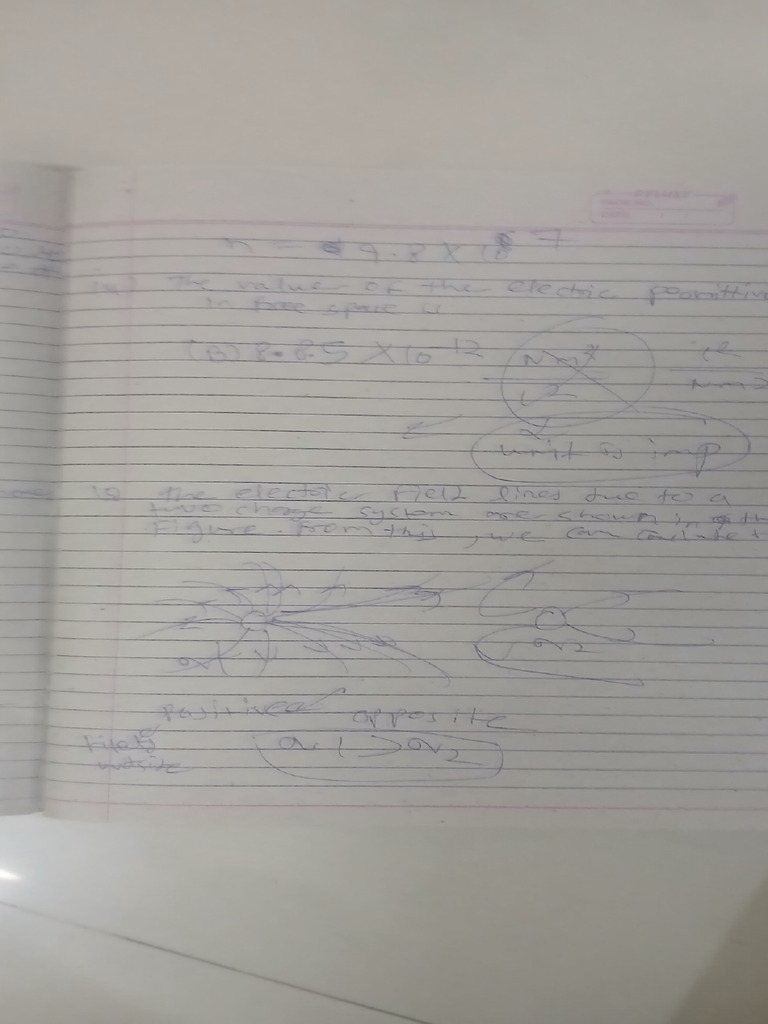 n = 9.8 X 10 7
The value of the electric permittiv
in free space is
(B) 8.85 X 10 -12 Nm2 C2
C2 Nm2
unit is imp
15 The electric field lines due to a
two charge system are shown in th
Figure. From this, we can conclude t
q1 q2
positive opposite
q1 > q2